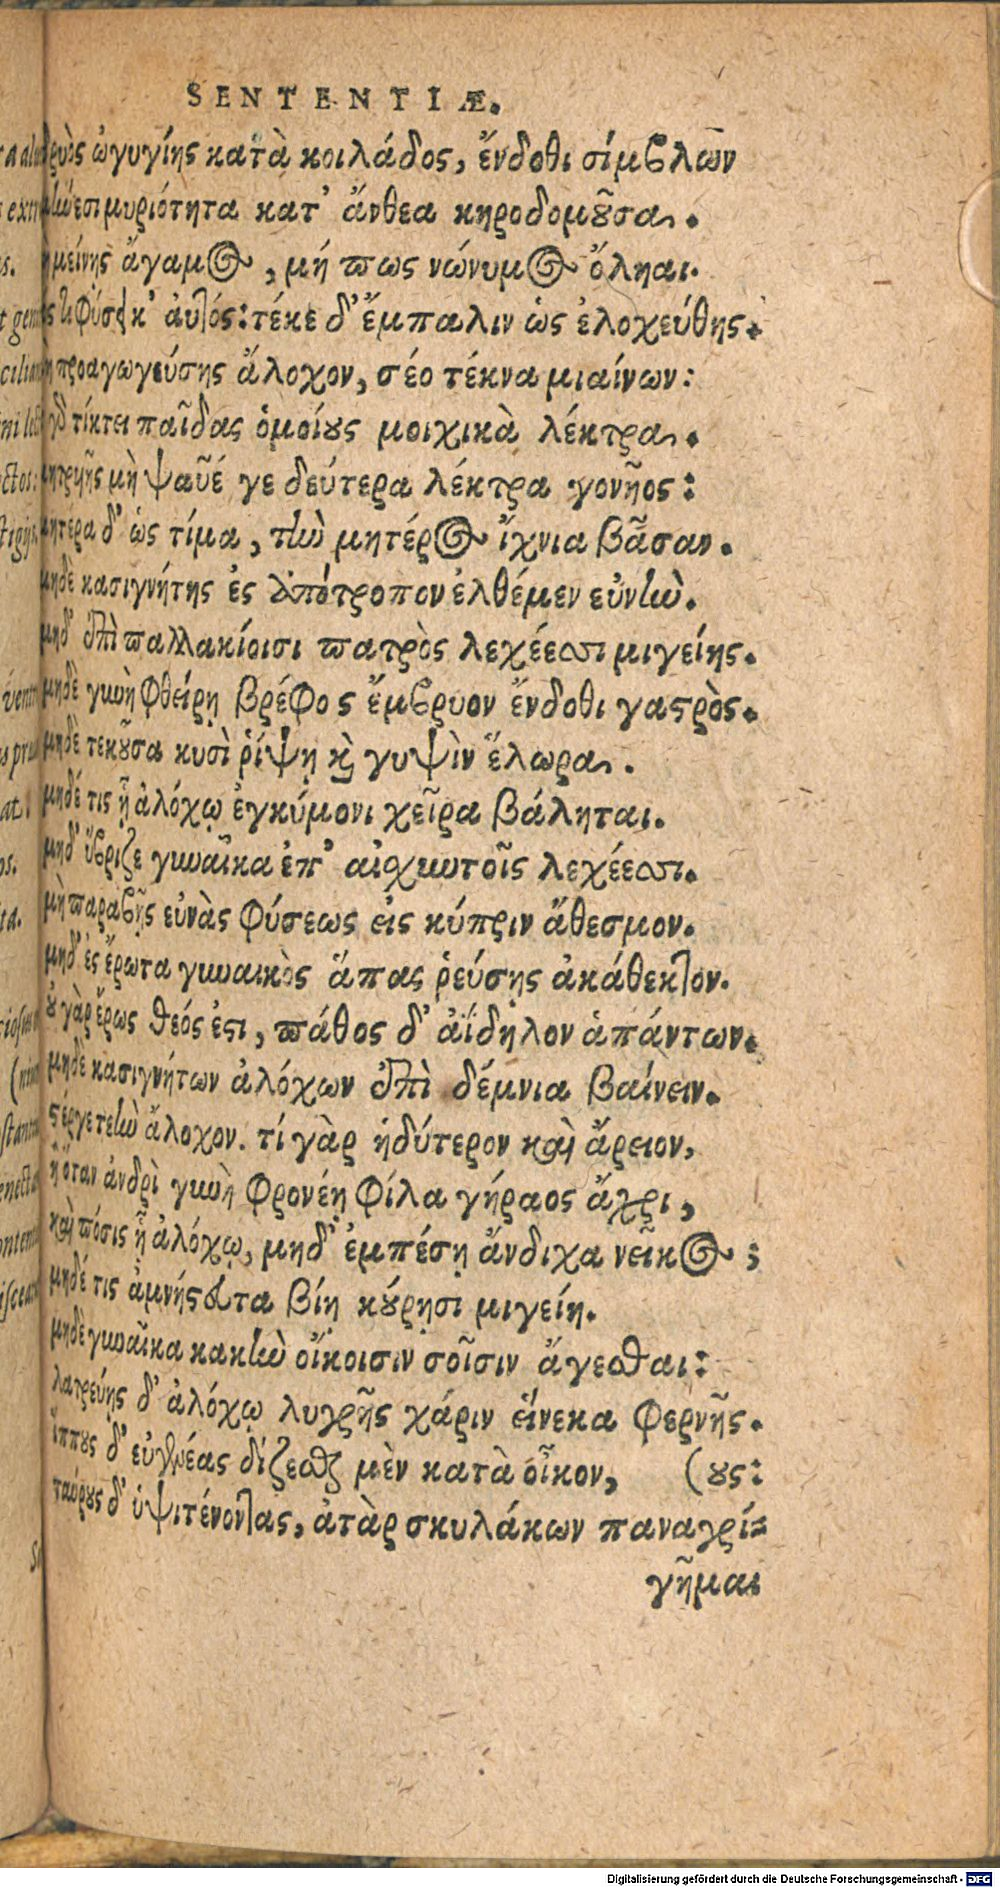 SENTENTIÆ.
δρυὸς ὠγυγίης κατὰ κοιλάδος, ἔνδοθι σίμβλων
μυριότητα κατ' ἄνθεα κηροδομοῦσα.
μὴ μείνῃς ἄγαμος, μή πως νώνυμος ὄληαι.
φύσει κ' αὐτός: τέκε δ' ἔμπαλιν ὡς ἐλοχεύθης.
μὴ προαγωγεύσῃς ἄλοχον, σέο τέκνα μιαίνων:
οὐ τίκτει παῖδας ὁμοίους μοιχικὰ λέκτρα.
μητρυῆς μὴ ψαῦέ γε δεύτερα λέκτρα γονῆος:
μητέρα δ' ὡς τίμα, τὴν μητέρος ἴχνια βᾶσαν.
μηδὲ κασιγνήτης ἐς ἀπότροπον ἐλθέμεν εὐνήν.
μηδ' ἐπὶ παλλακίοισι πατρὸς λεχέεσσι μιγείης.
μηδὲ γυνὴ φθείρῃ βρέφος ἔμβρυον ἔνδοθι γαστρὸς.
μηδὲ τεκοῦσα κυσὶ ῥίψῃ καὶ γυψὶν ἕλωρα.
μηδέ τις ᾗ ἀλόχῳ ἐγκύμονι χεῖρα βάληται.
μηδ' ὕβριζε γυναῖκα ἐπ' αἰσχυντοῖς λεχέεσσι.
μὴ παραβῇς εὐνὰς φύσεως εἰς κύπριν ἄθεσμον.
μηδ' ἐς ἔρωτα γυναικὸς ἅπας ῥεύσῃς ἀκάθεκτον.
οὐ γὰρ ἔρως θεός ἐστι, πάθος δ' ἀΐδηλον ἁπάντων.
μηδὲ κασιγνήτων ἀλόχων ἐπὶ δέμνια βαίνειν.
στέργε τεὴν ἄλοχον. τί γὰρ ἡδύτερον καὶ ἄρειον,
ἢ ὅταν ἀνδρὶ γυνὴ φρονέῃ φίλα γήραος ἄχρι,
καὶ πόσις ᾗ ἀλόχῳ, μηδ' ἐμπέσῃ ἄνδιχα νεῖκος;
μηδέ τις ἀμνήστευτα βίῃ κούρῃσι μιγείη.
μηδὲ γυναῖκα κακὴν οἴκοισιν σοῖσιν ἄγεσθαι:
λατρεύῃς δ' ἀλόχῳ λυγρῆς χάριν εἵνεκα φερνῆς.
ἵππους δ' εὐγενέας δίζεσθαι μὲν κατὰ οἶκον, (ους:
ταύρους δ' ὑψιτένοντας, ἀτὰρ σκυλάκων παναγρί-
γῆμαι
Digitalisierung gefördert durch die Deutsche Forschungsgemeinschaft - DFG